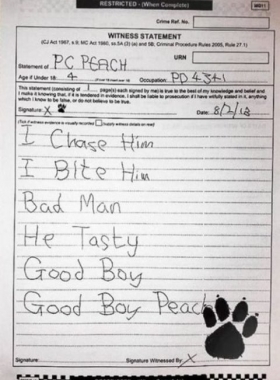 RESTRICTED - (When Complete)
MG11
Crime Ref. No.
WITNESS STATEMENT
(CJ Act 1967, s.9; MC Act 1980, ss.5A (3) (a) and 5B; Criminal Procedure Rules 2005, Rule 27.1)
URN
Statement of PC PEACH
Age if Under 18: 4 Occupation: PD 4341
This statement (consisting of 1 page(s) each signed by me) is true to the best of my knowledge and belief and
I make it knowing that, if it is tendered in evidence, I shall be liable to prosecution if I have wilfully stated in it, anything
which I know to be false, or do not believe to be true.
Signature: X Date: 8/2/18
(Tick if witness evidence is visually recorded (supply witness details on rear)
I Chase Him
I Bite Him
Bad Man
He Tasty
Good Boy
Good Boy Peach
Signature: Signature Witnessed By: X